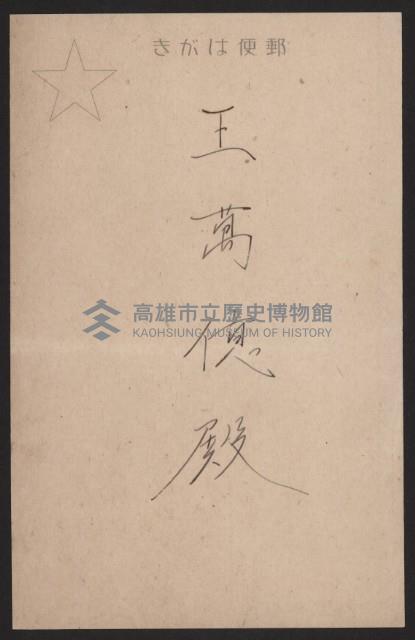 郵便はがき
王萬億殿
高雄市立歷史博物館
KAOHSIUNG MUSEUM OF HISTORY